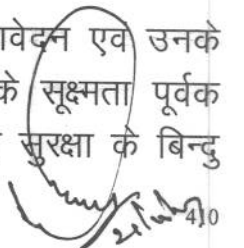 वेदन एवं उनके
के सूक्ष्मता पूर्वक
सुरक्षा के बिन्दु
410